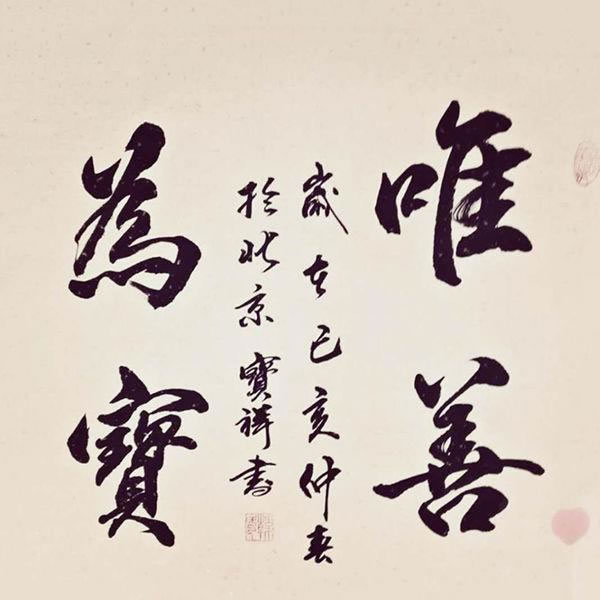 唯善
為寶
歲在己亥仲春
於北京寶祥書